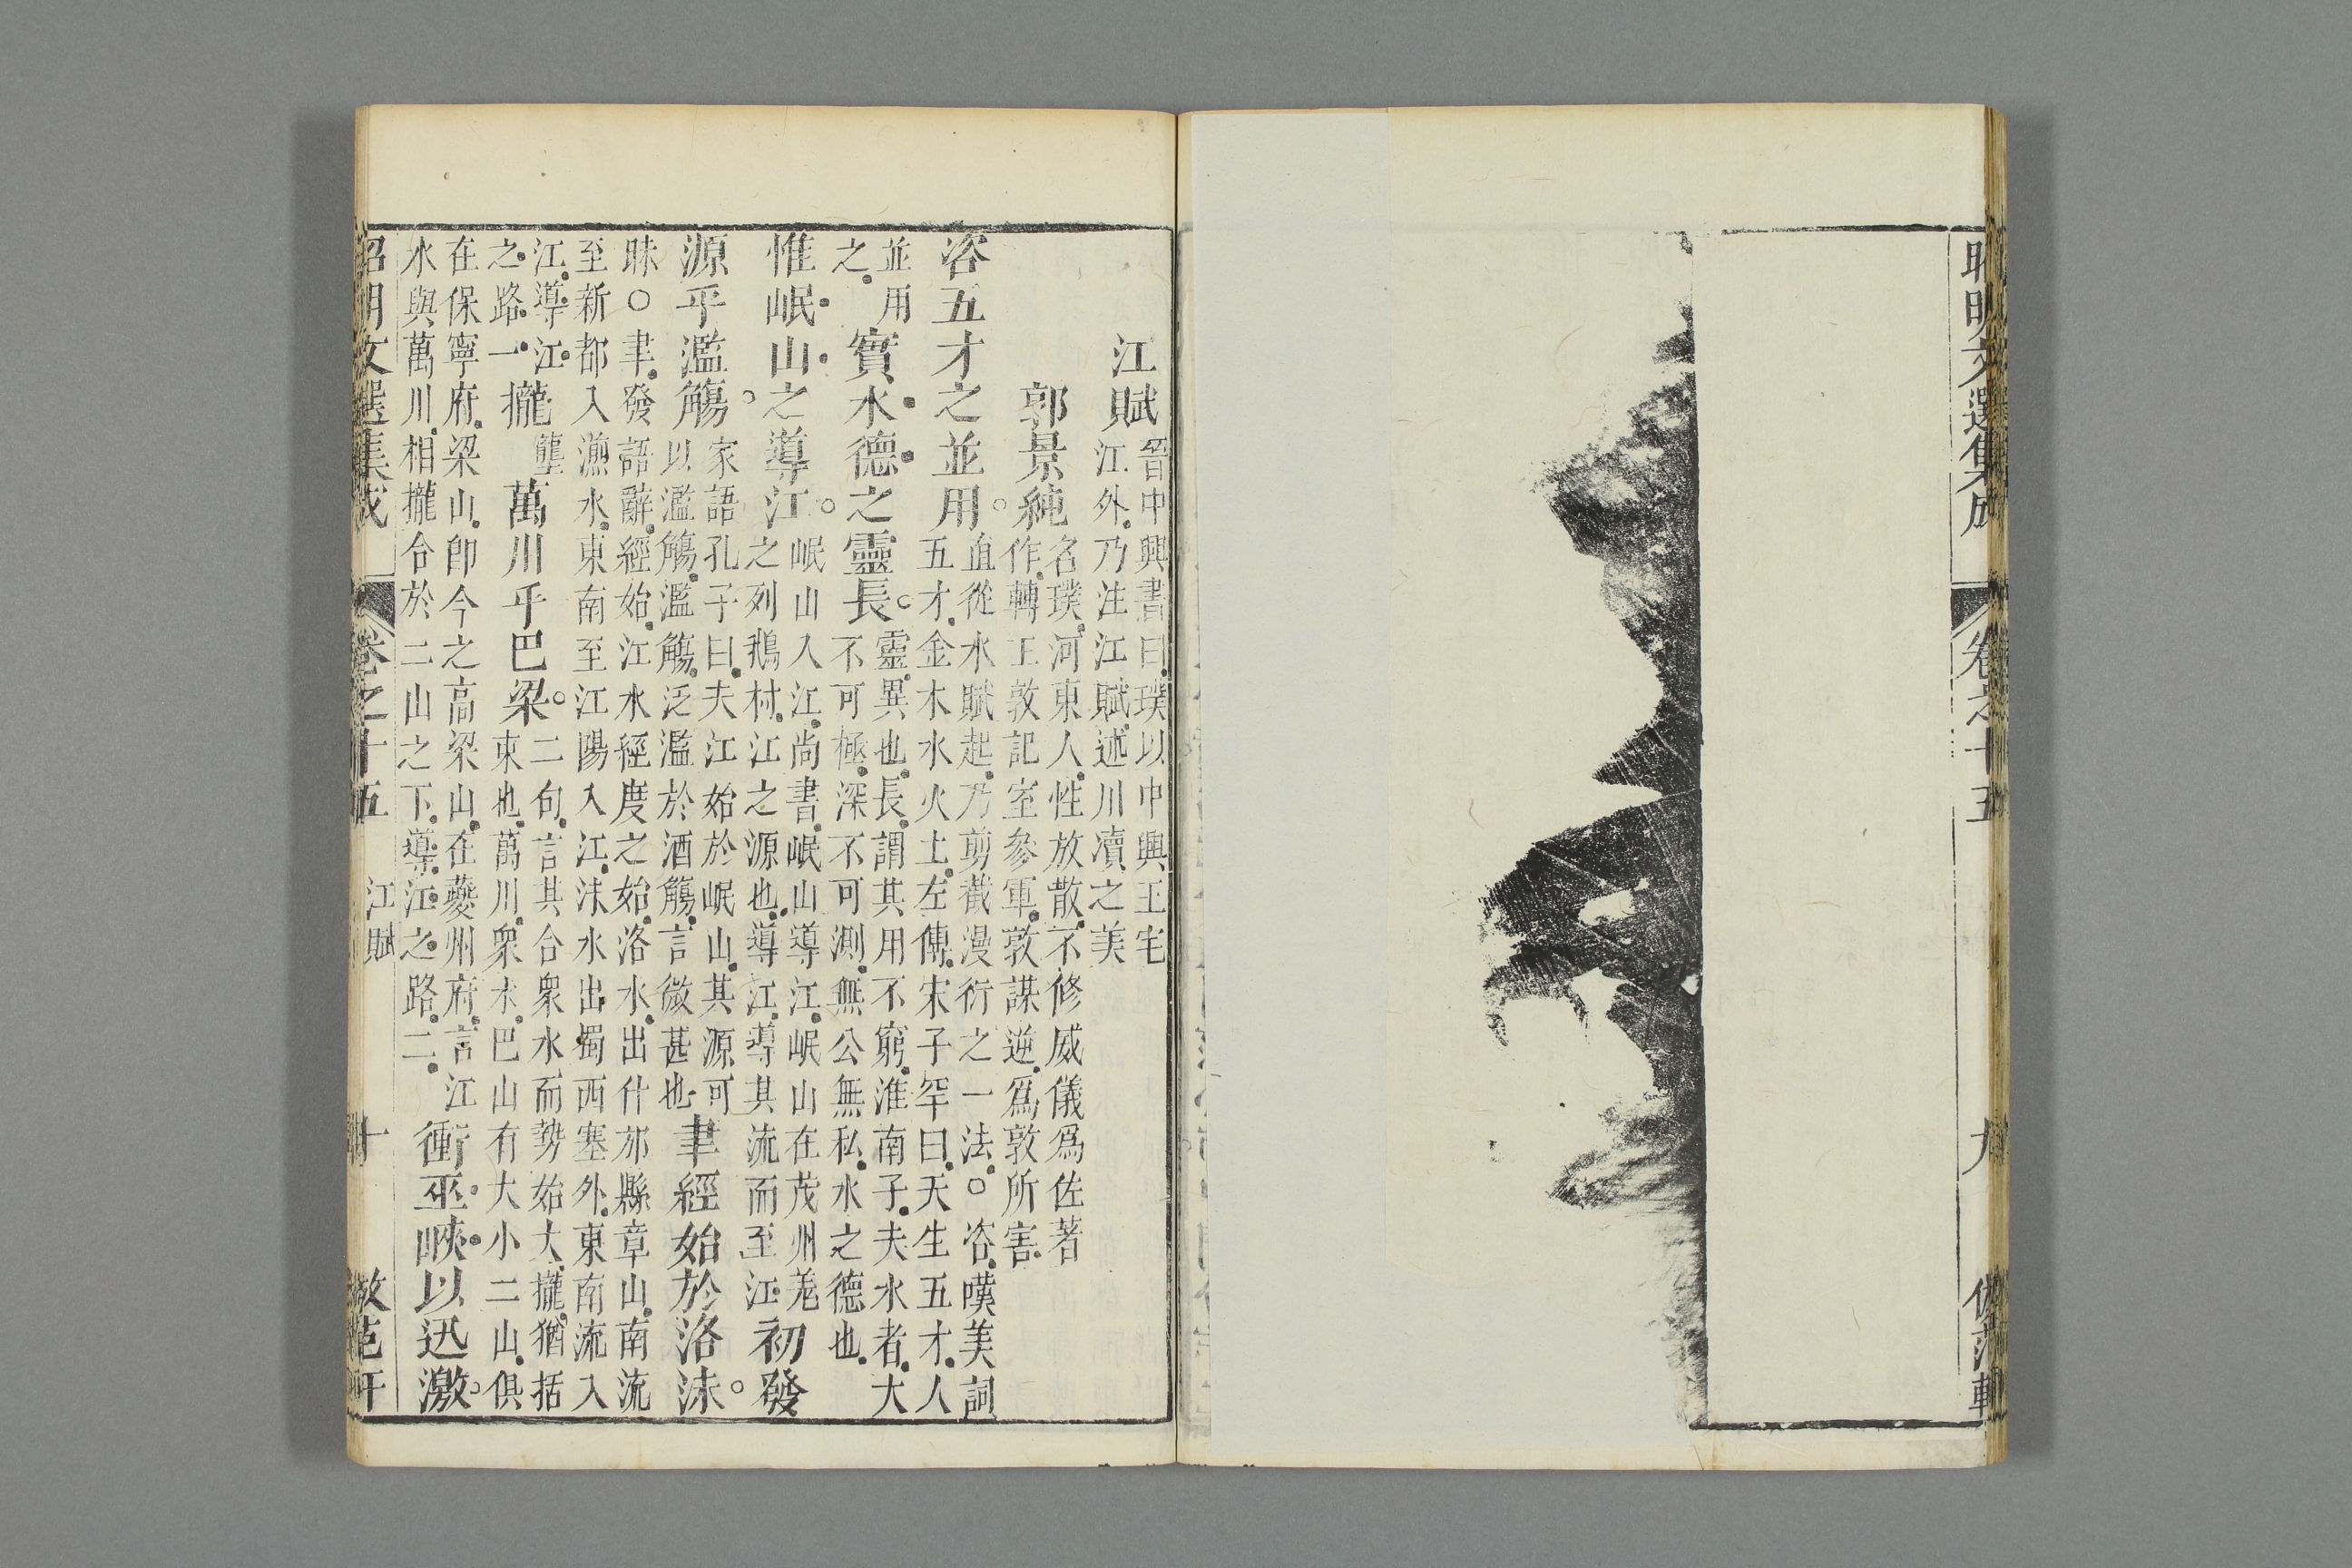 昭明文選集成
卷之十五
九
倣范軒
江賦 晉中興書曰璞以中興王宅
江外乃注江賦述川瀆之美
郭景純 名璞河東人性放散不修威儀爲佐著
作轉王敦記室參軍敦謀逆爲敦所害
咨五才之並用 直從水賦起乃剪截漫衍之一法○咨嘆美詞
五才金木水火土左傳宋子罕曰天生五才人
並用之 實水德之靈長 靈異也長謂其用不窮淮南子夫水者大
不可極深不可測無公無私水之德也
惟岷山之導江 岷山入江尚書岷山導江岷山在茂州羗
之列鵝村江之源也導江導其流而至江 初發
源乎濫觴 家語孔子曰夫江始於岷山其源可
以濫觴濫觴泛濫於酒觴言微甚也 聿經始於洛沬
昧○聿發語辭經始江水經度之始洛水出什邡縣章山南流
至新都入㶟水東南至江陽入江沬水出蜀西塞外東南流入
江導江之路一 攏 壟 萬川乎巴梁 二句言其合衆水而勢始大攏猶括
束也萬川衆水巴山有大小二山俱
在保寧府梁山卽今之高梁山在夔州府言江
水與萬川相攏合於二山之下導江之路二 衝巫峽以迅激
昭明文選集成
卷之十五
江賦
十
倣范軒